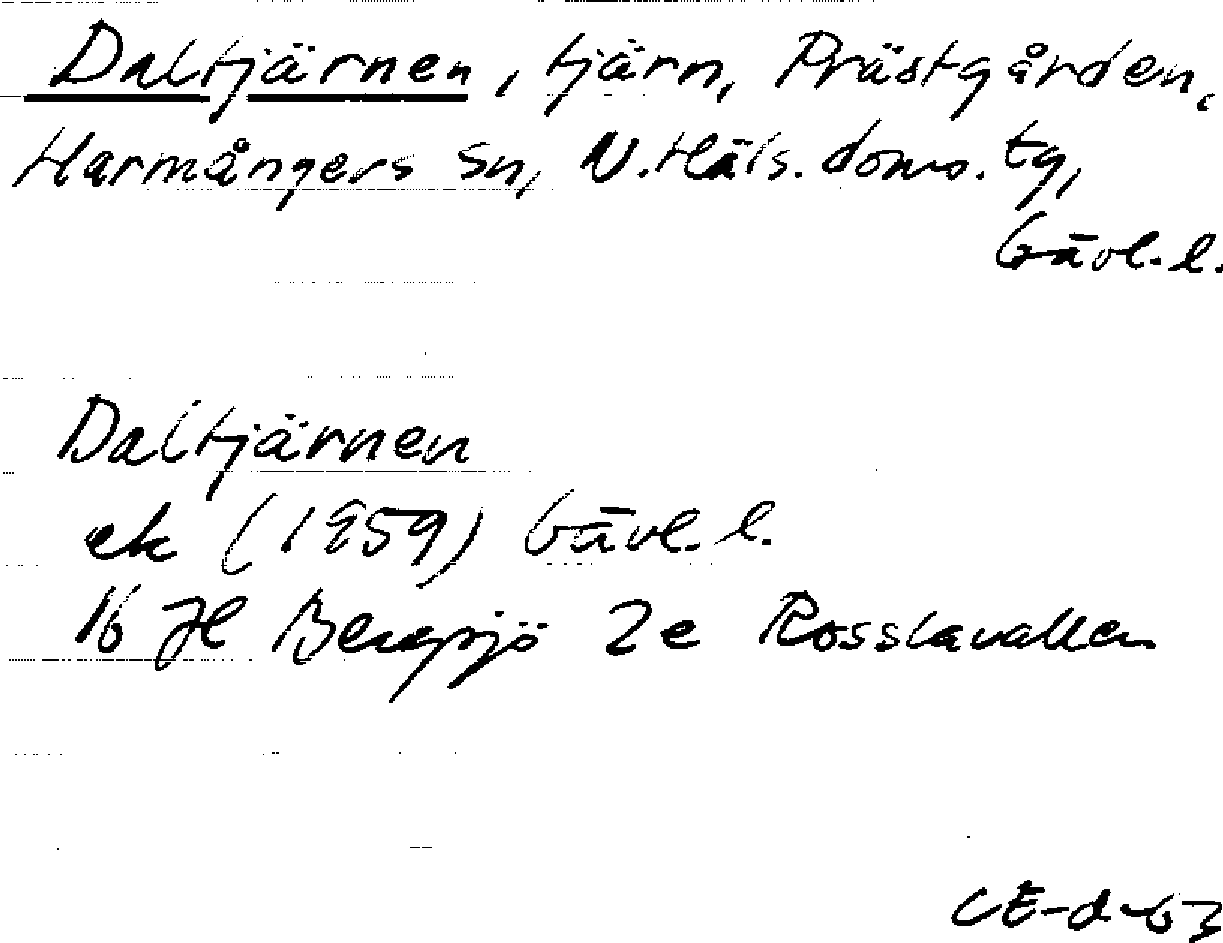 Daltjärnen, tjärn, Prästgården,
Harmångers sn, N. Häls. doms. tg,
Gävl. l.
Daltjärnen
ek (1959) Gävl. l.
16 H Bergsjö 2e Rosslavallen
CE-d-63